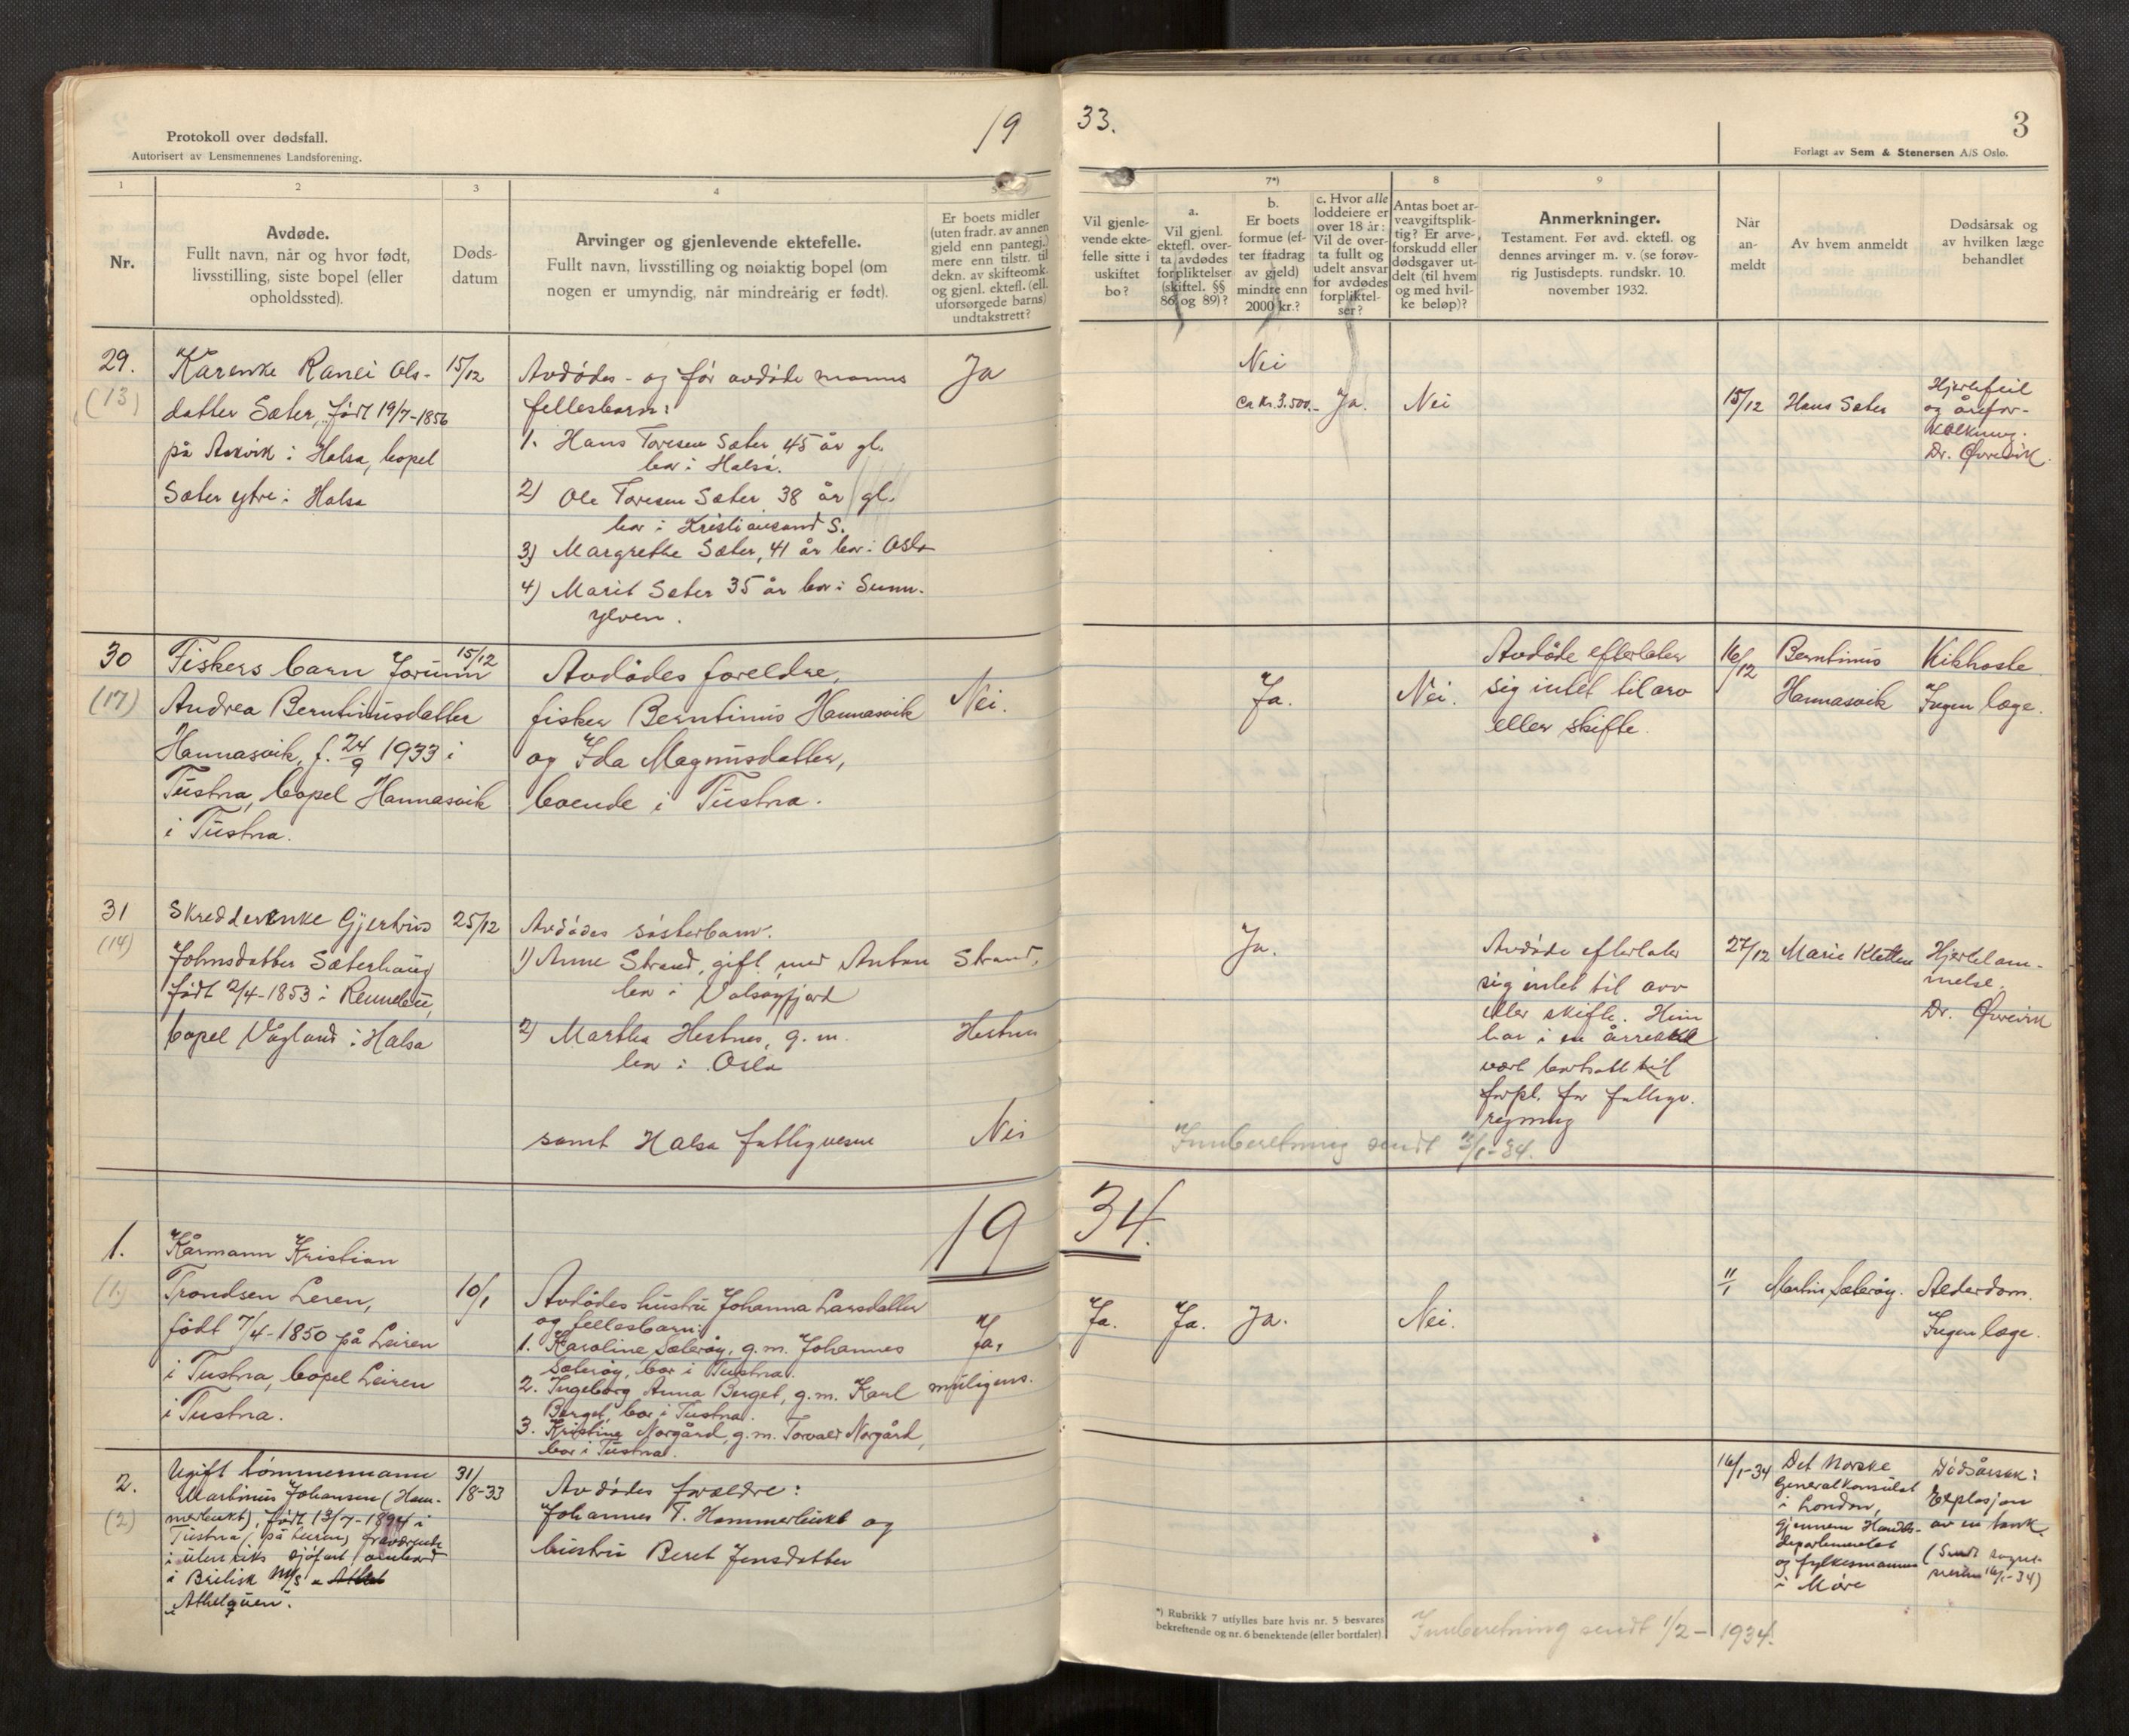 Protokoll over dødsfall.
Autorisert av Lensmennenes Landsforening.
19
33.
3
Forlagt av Sem & Stenersen A/S Oslo.
1
2
3
4
5
7*)
8
9
Nr.
Avdøde.
Fullt navn, når og hvor født,
livsstilling, siste bopel (eller
opholdssted).
Døds-
datum
Arvinger og gjenlevende ektefelle.
Fullt navn, livsstilling og nøiaktig bopel (om
nogen er umyndig, når mindreårig er født).
Er boets midler
(uten fradr. av annen
gjeld enn pantegj.)
mere enn tilstr. til
dekn. av skifteomk.
og gjenl. ektefl. (ell.
uforsørgede barns)
undtakstrett?
Vil gjenle-
vende ekte-
felle sitte i
uskiftet
bo?
a.
Vil gjenl.
ektefl. over-
ta avdødes
forpliktelser
(skiftel. §§
86 og 89)?
b.
Er boets
formue (ef-
ter fradrag
av gjeld)
mindre enn
2000 kr.?
c. Hvor alle
loddeiere er
over 18 år:
Vil de over-
ta fullt og
udelt ansvar
for avdødes
forpliktel-
ser?
Antas boet ar-
veavgiftsplik-
tig? Er arve-
forskudd eller
dødsgaver ut-
delt (til hvem
og med hvil-
ke beløp)?
Anmerkninger.
Testament. Før avd. ektefl. og
dennes arvinger m. v. (se forøv-
rig Justisdepts. rundskr. 10.
november 1932.
Når
an-
meldt
Av hvem anmeldt
Dødsårsak og
av hvilken læge
behandlet
29.
(13)
Kårenke Ranei Ols-
datter Sæter, født 19/7-1856
på Aakvik i Halsa, bopel
Sæter ytre i Halsa
15/12
Avdødes - og før avdøde manns
fellesbarn:
1. Hans Toresen Sæter 45 år gl.
bor i Halsa.
2) Ole Toresen Sæter 38 år gl.
bor i Kristiansand S.
3) Margrethe Sæter, 41 år bor i Oslo
4) Marit Sæter 35 år bor i Sunn-
ylven.
Ja
Nei
ca kr. 3.500.- Ja.
Nei
15/12
Hans Sæter
Hjertefeil
og årefor-
kalkning.
Dr. Øvrevik.
30
(17)
Fiskers barn Jorunn
Andrea Berntinusdatter
Hannasvik, f. 24/9 1933 i
Tustna, bopel Hannasvik
i Tustna.
15/12
Avdødes foreldre,
fisker Berntinus Hannasvik
og Ida Magnusdatter,
boende i Tustna.
Nei.
Ja.
Nei.
Avdøde efterlater
sig intet til arv
eller skifte.
16/12
Berntinus
Hannasvik
Kikhoste
Ingen læge.
31
(14)
Skredderenke Gjertrud
Johnsdatter Sæterhaug
født 2/4-1853 i Rennebu,
bopel Vågland i Halsa
25/12
Avdødes søsterbarn.
1) Anne Strand, gift med Anton Strand,
bor i Valsøyfjord
2) Martha Hestnes, g. m. Hestnes
bor i Oslo
samt Halsa fattigvesen
Nei
Ja.
Avdøde efterlater
sig intet til arv
eller skifte. Hun
har i en årrekke
vært bortsatt til
forpl. for fattigv.
regning
27/12
Marie Kletten
Hjertelam-
melse.
Dr. Øvrevik
Innberetning sendt 3/1-34.
19
34.
1.
(1.)
Kårmann Kristian
Trondsen Leren,
født 7/4-1850 på Leiren
i Tustna, bopel Leiren
i Tustna.
10/1
Avdødes hustru Johanna Larsdatter
og fellesbarn:
1. Karoline Sæterøy, g.m. Johannes
Sæterøy, bor i Tustna.
2. Ingeborg Anna Berget, g.m. Karl
Berget, bor i Tustna.
3. Kristine Norgård, g.m. Torvald Norgård,
bor i Tustna.
Ja,
muligens.
Ja.
Ja.
Ja.
Nei.
11/1
Martin Sæterøy.
Alderdom.
Ingen læge.
2.
(2)
Ugift tømmermann
Martinus Johansen (Ham-
merbukt), født 13/7-1894 i
Tustna
i utenriks sjøfart
i Britisk M/S
"Athelquen".
31/8-33
Avdødes foreldre:
Johannes T. Hammerbukt og
hustru Beret Jensdatter
16/1-34
Det Norske
Generalkonsulat
i London,
gjennem Handels-
departementet
og fylkesmannen
i Møre
Dødsårsak:
Explosjon
av en tank
*) Rubrikk 7 utfylles bare hvis nr. 5 besvares
bekreftende og nr. 6 benektende (eller bortfaler)
Innberetning sendt 1/2-1934.